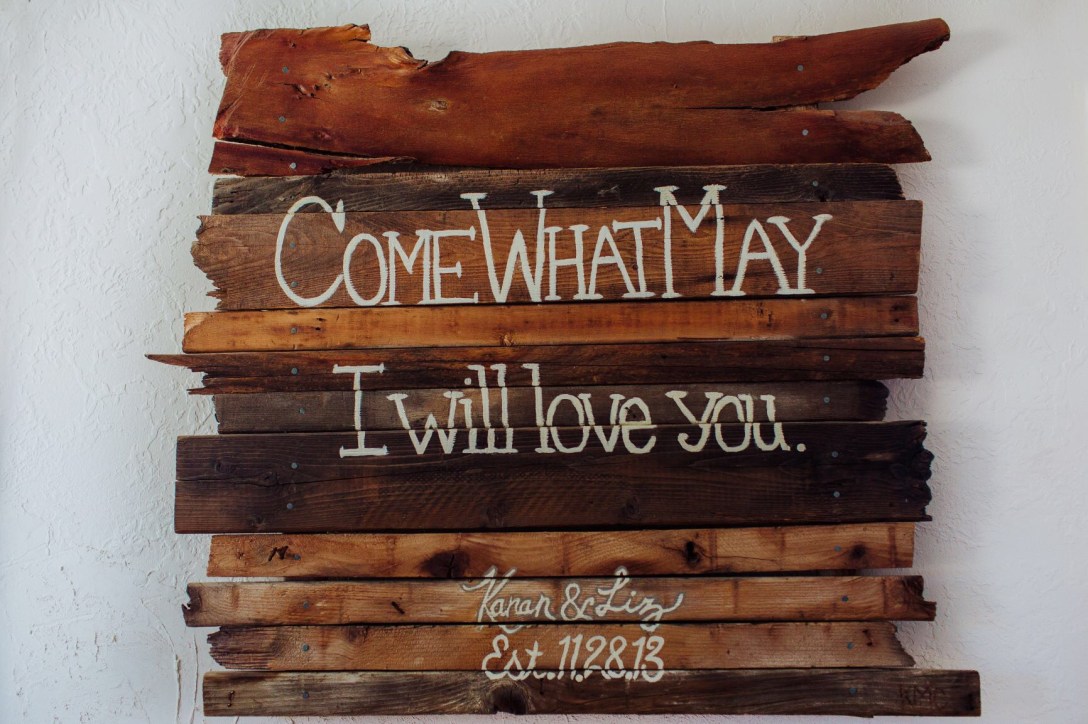 COME WHAT MAY
I will love you.
Kanan & Liz
Est. 11.28.13